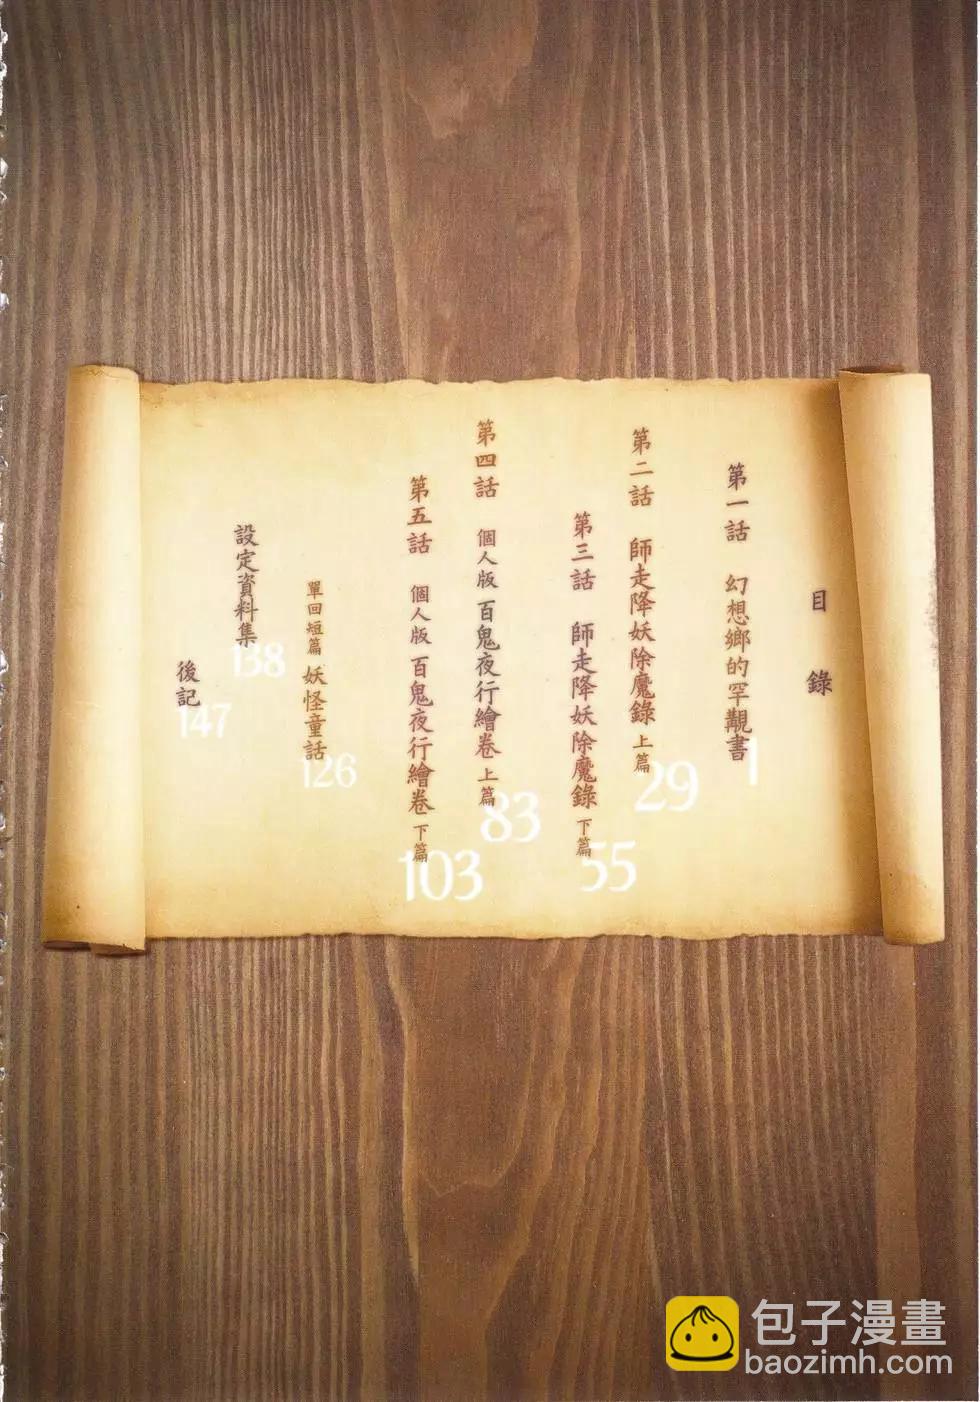 目錄
第一話 幻想鄉的罕覯書
1
第二話 師走降妖除魔錄 上篇
29
第三話 師走降妖除魔錄 下篇
55
第四話 個人版 百鬼夜行繪卷 上篇
83
第五話 個人版 百鬼夜行繪卷 下篇
103
單回短篇 妖怪童話
126
設定資料集
138
後記
147
包子漫畫
baozimh.com